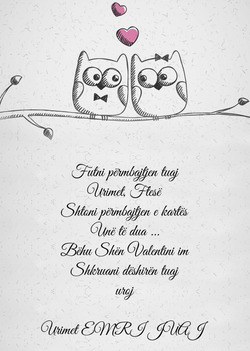 Futni përmbajtjen tuaj
Urimet, Ftesë
Shtoni përmbajtjen e kartës
Unë të dua ...
Bëhu Shën Valentini im
Shkruani dëshirën tuaj
uroj
Urimet EMRI JUAJ